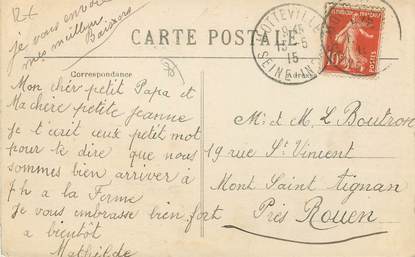 je vous envoie
mes meilleurs
Baisers
CARTE POSTALE
Correspondance
SOTTEVILLE
15
SEINE INF
10
Mon chér petit Papa et
Ma chére petite Jeanne
je t'ecrit ceux petit mot
pour te dire que nous
sommes bien arriver à
7h a la Ferme
Je vous embrasse bien fort
a bientôt
Mathilde
Mr et M. L Boutron
19 rue St Vincent
Mont Saint Tignan
Près Rouen